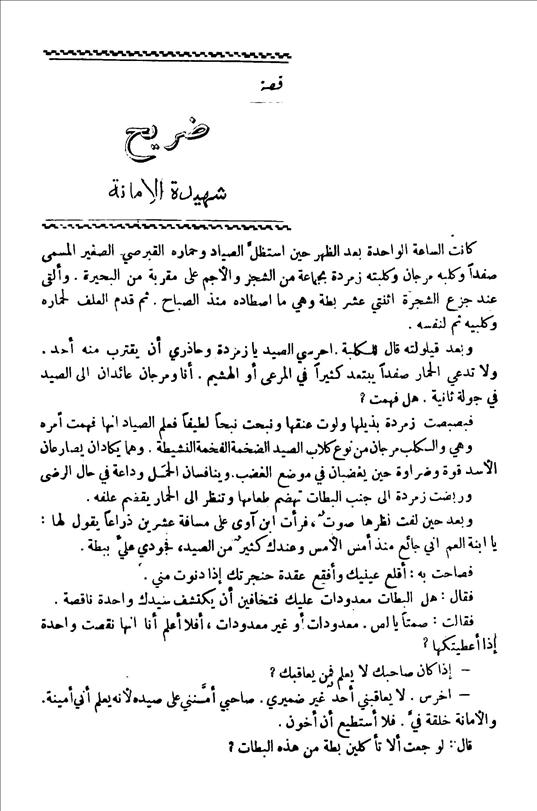 قصة
ضريح
شهيدة الامانة
كانت الساعة الواحدة بعد الظهر حين استظلَّ الصياد وحماره القبرصي الصغير المسمى
صفداً وكلبه مرجان وكلبته زمردة بجماعة من الشجر والأجم على مقربة من البحيرة . وألقى
عند جزع الشجرة اثنتي عشر بطة وهي ما اصطاده منذ الصباح . ثم قدم العلف لحماره
وكلبيه ثم لنفسه .
وبعد قيلولته قال للكلبة . احرسي الصيد يا زمردة وحاذري أن يقترب منه أحد .
ولا تدعي الحمار صفداً يبتعد كثيراً في المرعى أو الهشيم . أنا ومرجان عائدان الى الصيد
في جولة ثانية . هل فهمت ؟
فبصبصت زمردة بذيلها ولوت عنقها ونبحت نبحاً لطيفاً فعلم الصياد انها فهمت أمره
وهي والكلب مرجان من نوع كلاب الصيد الضخمة الفخمة النشيطة . وهما يكادان يصارعان
الأسد قوة وضراوة حين يغضبان في موضع الغضب . وينافسان الحمَل وداعة في حال الرضى
وربضت زمردة الى جنب البطات تهضم طعامها وتنظر الى الحمار يقضم علفه .
وبعد حين لفت نظرها صوتٌ ، فرأت ابن آوى على مسافة عشرين ذراعاً يقول لها :
يا ابنة العم اني جائع منذ أمس الأمس وعندك كثيرٌ من الصيد ، فجودي عليَّ ببطة .
فصاحت به : أقلع عينيك وأفقع عقدة حنجرتك إذا دنوت مني .
فقال : هل البطات معدودات عليك فتخافين أن يكتشف سيدك واحدة ناقصة .
فقالت : صمتاً يا لص . معدودات أو غير معدودات ، أفلا أعلم أنا انها نقصت واحدة
إذا أعطيتكها ؟
– إذا كان صاحبك لا يعلم فمن يعاقبك ؟
– اخرس . لا يعاقبني أحدٌ غير ضميري . صاحبي أمَّنني على صيده لأنه يعلم أني أمينة .
والأمانة خلقة فيَّ . فلا أستطيع أن أخون .
قال : لو جعت ألا تأكلين بطة من هذه البطات ؟